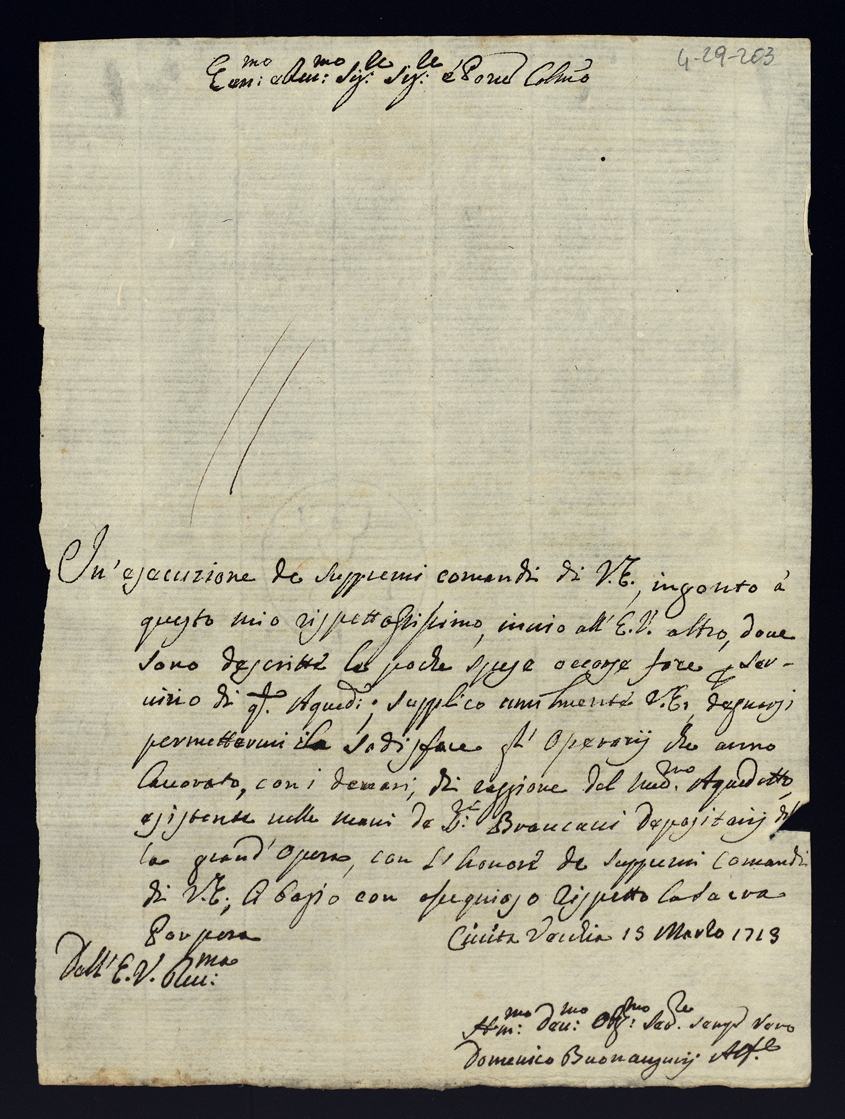 4-29-203
Em:mo e Reu:mo Sig:le Sig:le è Pone Colmo
In' esecuzione de supremi comandi di V.E., ingonto à
questo mio rispettosissimo, inuio all' E.V. altro, doue
sono descritte le poche spese occorse fare p ser-
uizio di q.ti Aquedi; supplico umilmente V.E., degnarsi
permettermi il sodisfare gl' Operarij che anno
lauorato, con i denari, di raggione del med:mo Aquedotto,
esistente nelle mani de SS:ri Brancacci depositarij del
la grand' Opera, con l'honore de supremi comandi
di V.E., li bagio con ossequioso rispetto la Sacra
Porpora
Ciuita Vecchia 13 Marzo 1713
Dall' E.V. Reu:ma
Hm:mo Deu:mo Obg:mo Ser.re sempre vero
Domenico Buonaugurij